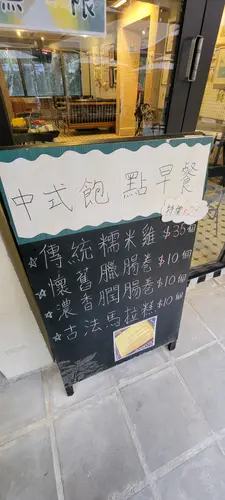 中式飽點早餐
☆傳統糯米雞$35個
☆懷舊臘腸卷$10個
☆濃香膶腸卷$10個
☆古法馬拉糕$10個